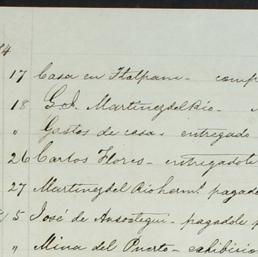 14
17 Casa en Tlalpam - comp
18 G. I. Martinez del Rio -
" Gastos de casa, entregado
26 Carlos Flores - entregadole
27 Martinez del Rio herm.s pagado
5 José de Ansoategui - pagadole p
" Mina del Puerto - exhibicio